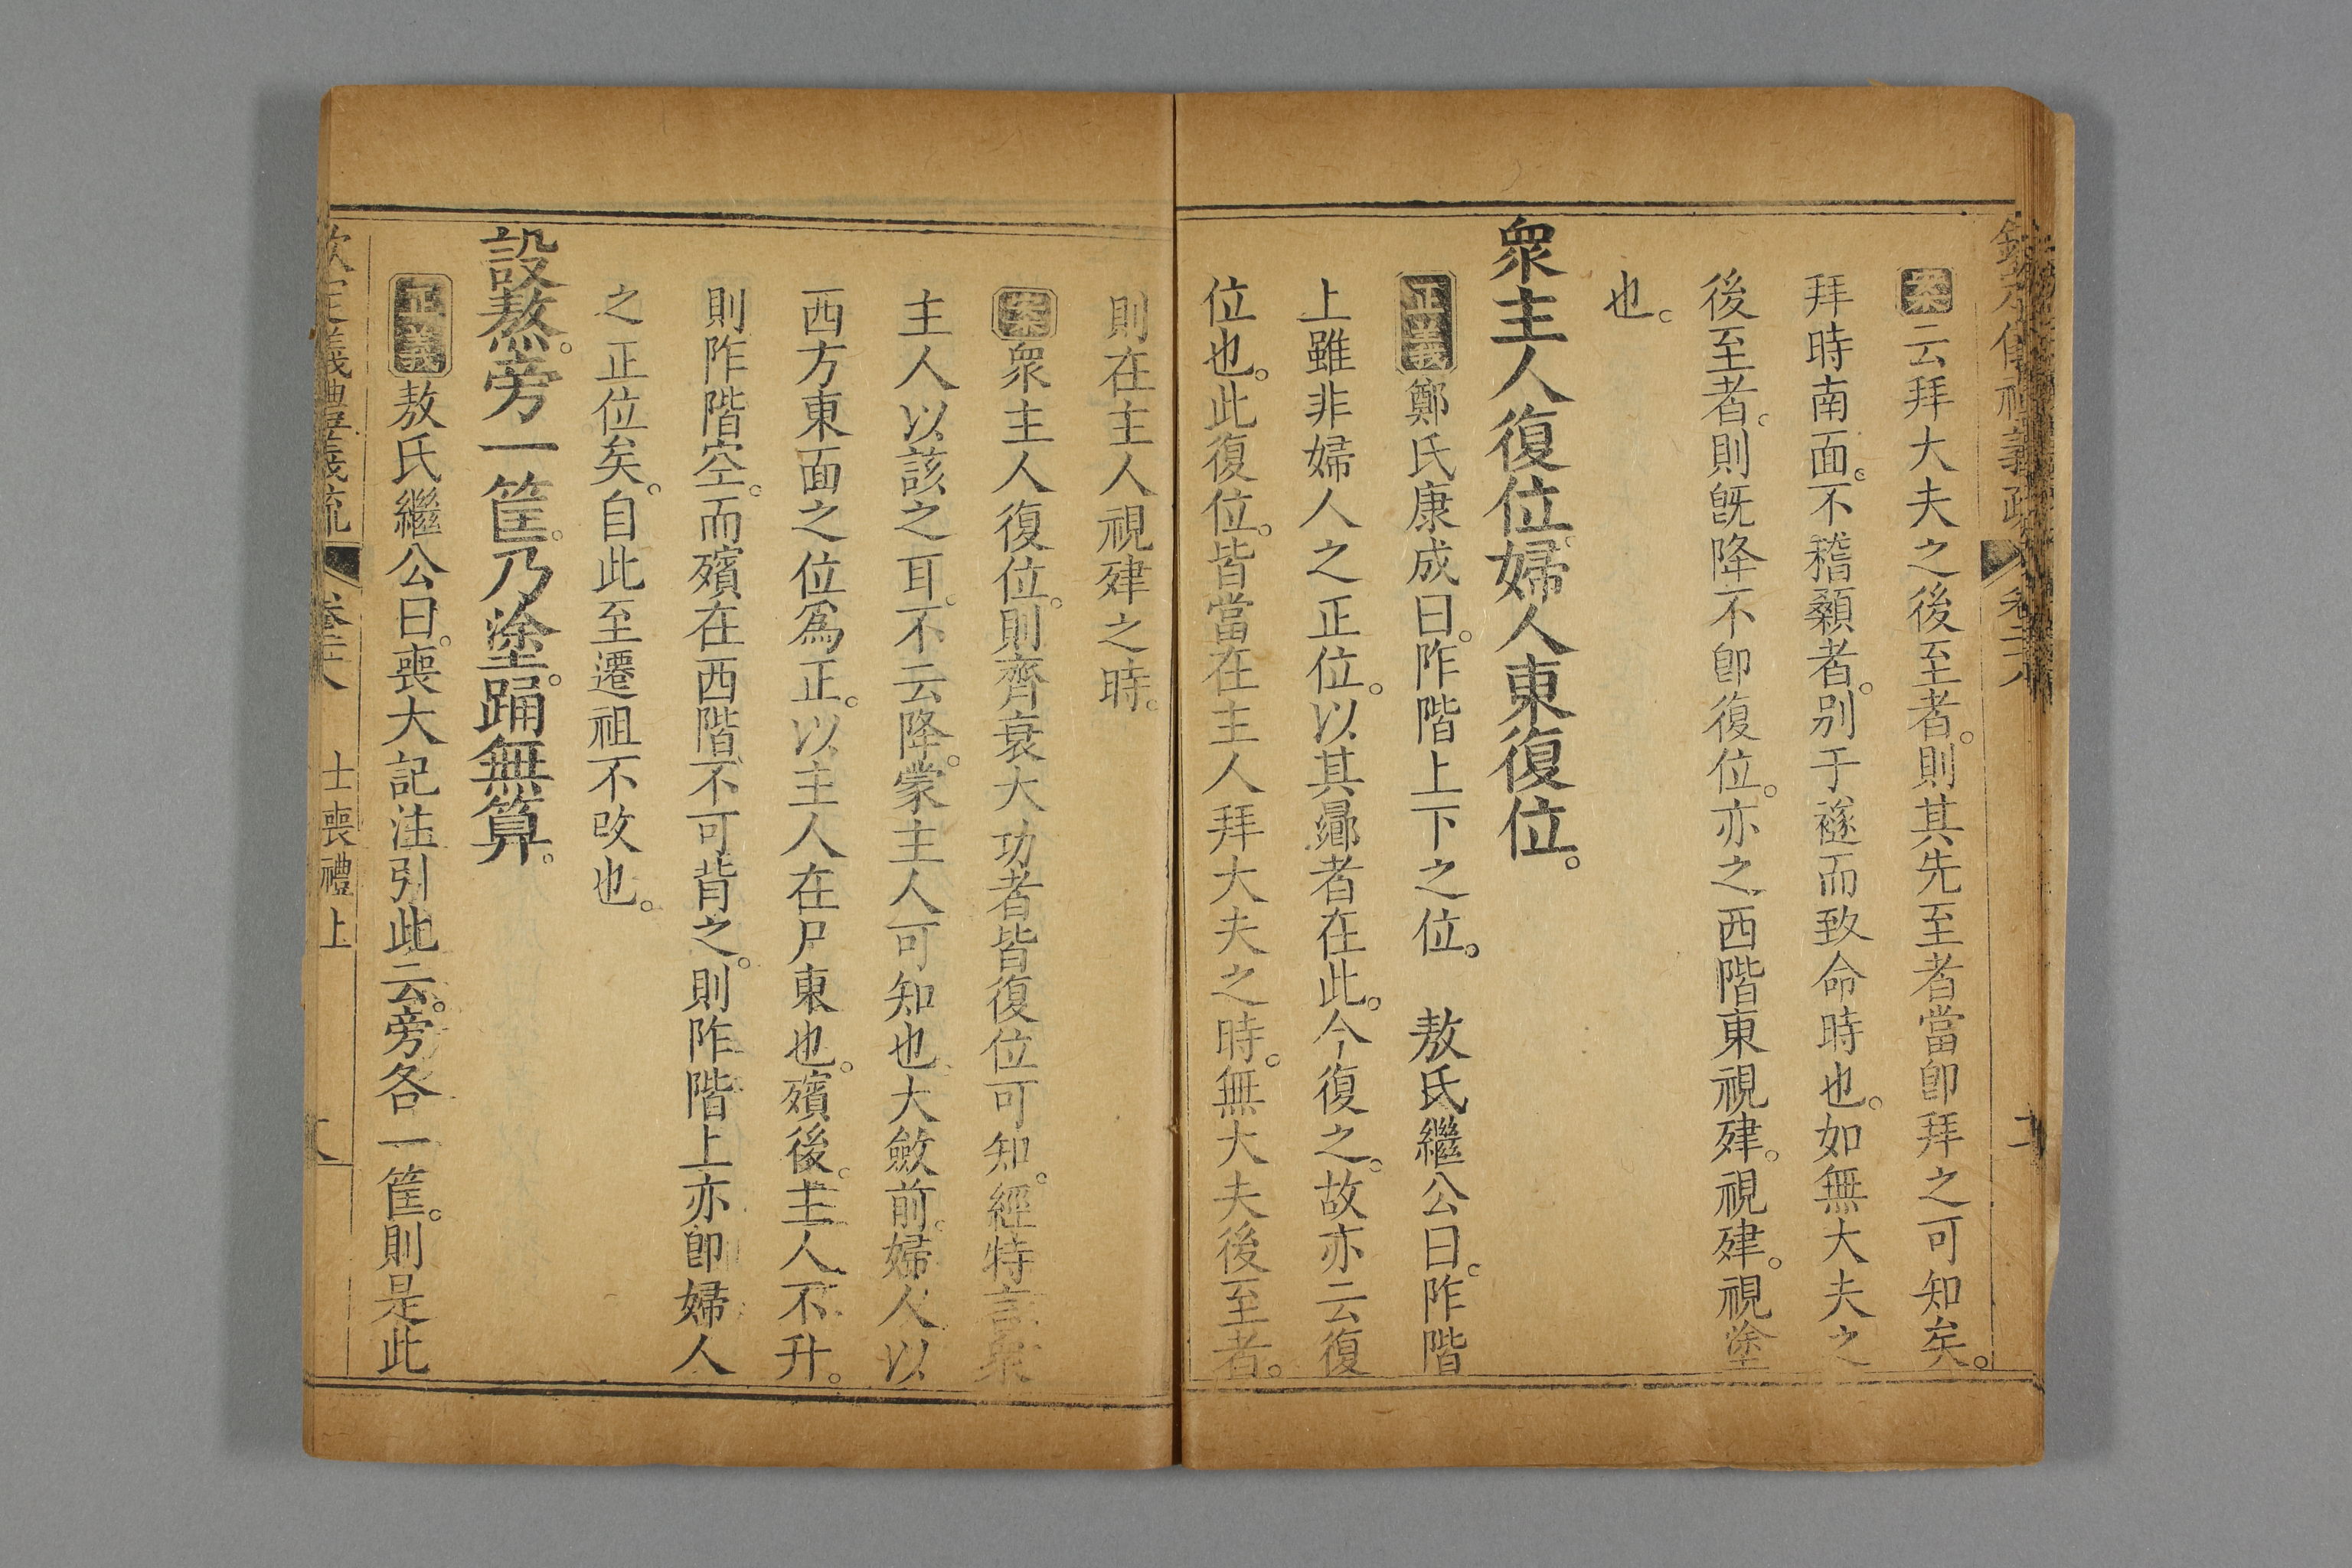 案云拜大夫之後至者。則其先至者當卽拜之可知矣。
拜時南面。不稽顙者。别于襚而致命時也。如無大夫之
後至者。則旣降不卽復位。亦之西階東視肂。視肂。視塗
也。
衆主人復位。婦人東復位。
正義鄭氏康成曰。阼階上下之位。　敖氏繼公曰。阼階
上雖非婦人之正位。以其曏者在此。今復之。故亦云復
位也。此復位。皆當在主人拜大夫之時。無大夫後至者。
則在主人視肂之時。
案衆主人復位。則齊衰大功者皆復位可知。經特言衆
主人以該之耳。不云降。蒙主人可知也。大斂前。婦人以
西方東面之位爲正。以主人在尸東也。殯後。主人不升。
則阼階空。而殯在西階。不可背之。則阼階上亦卽婦人
之正位矣。自此至遷祖不改也。
設熬。旁一筐。乃塗。踊無算。
正義敖氏繼公曰。喪大記注引此云。旁各一筐。則是此
欽定義禮義疏　卷二十八　士喪禮上